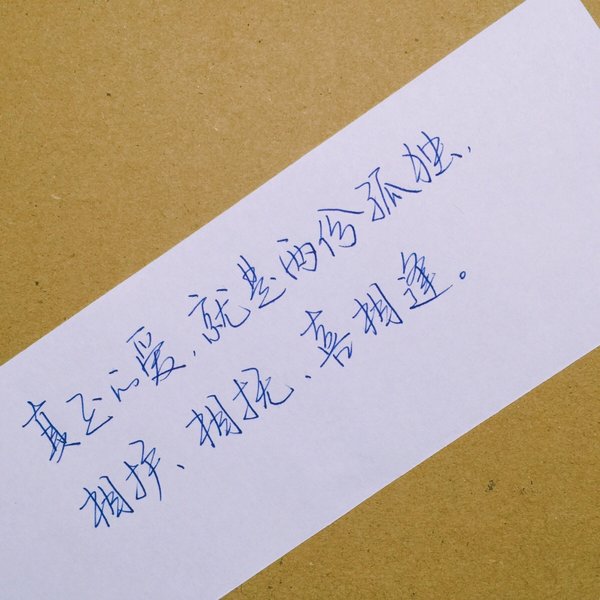 真正的爱，就是两份孤独，
相护、相抚、喜相逢。